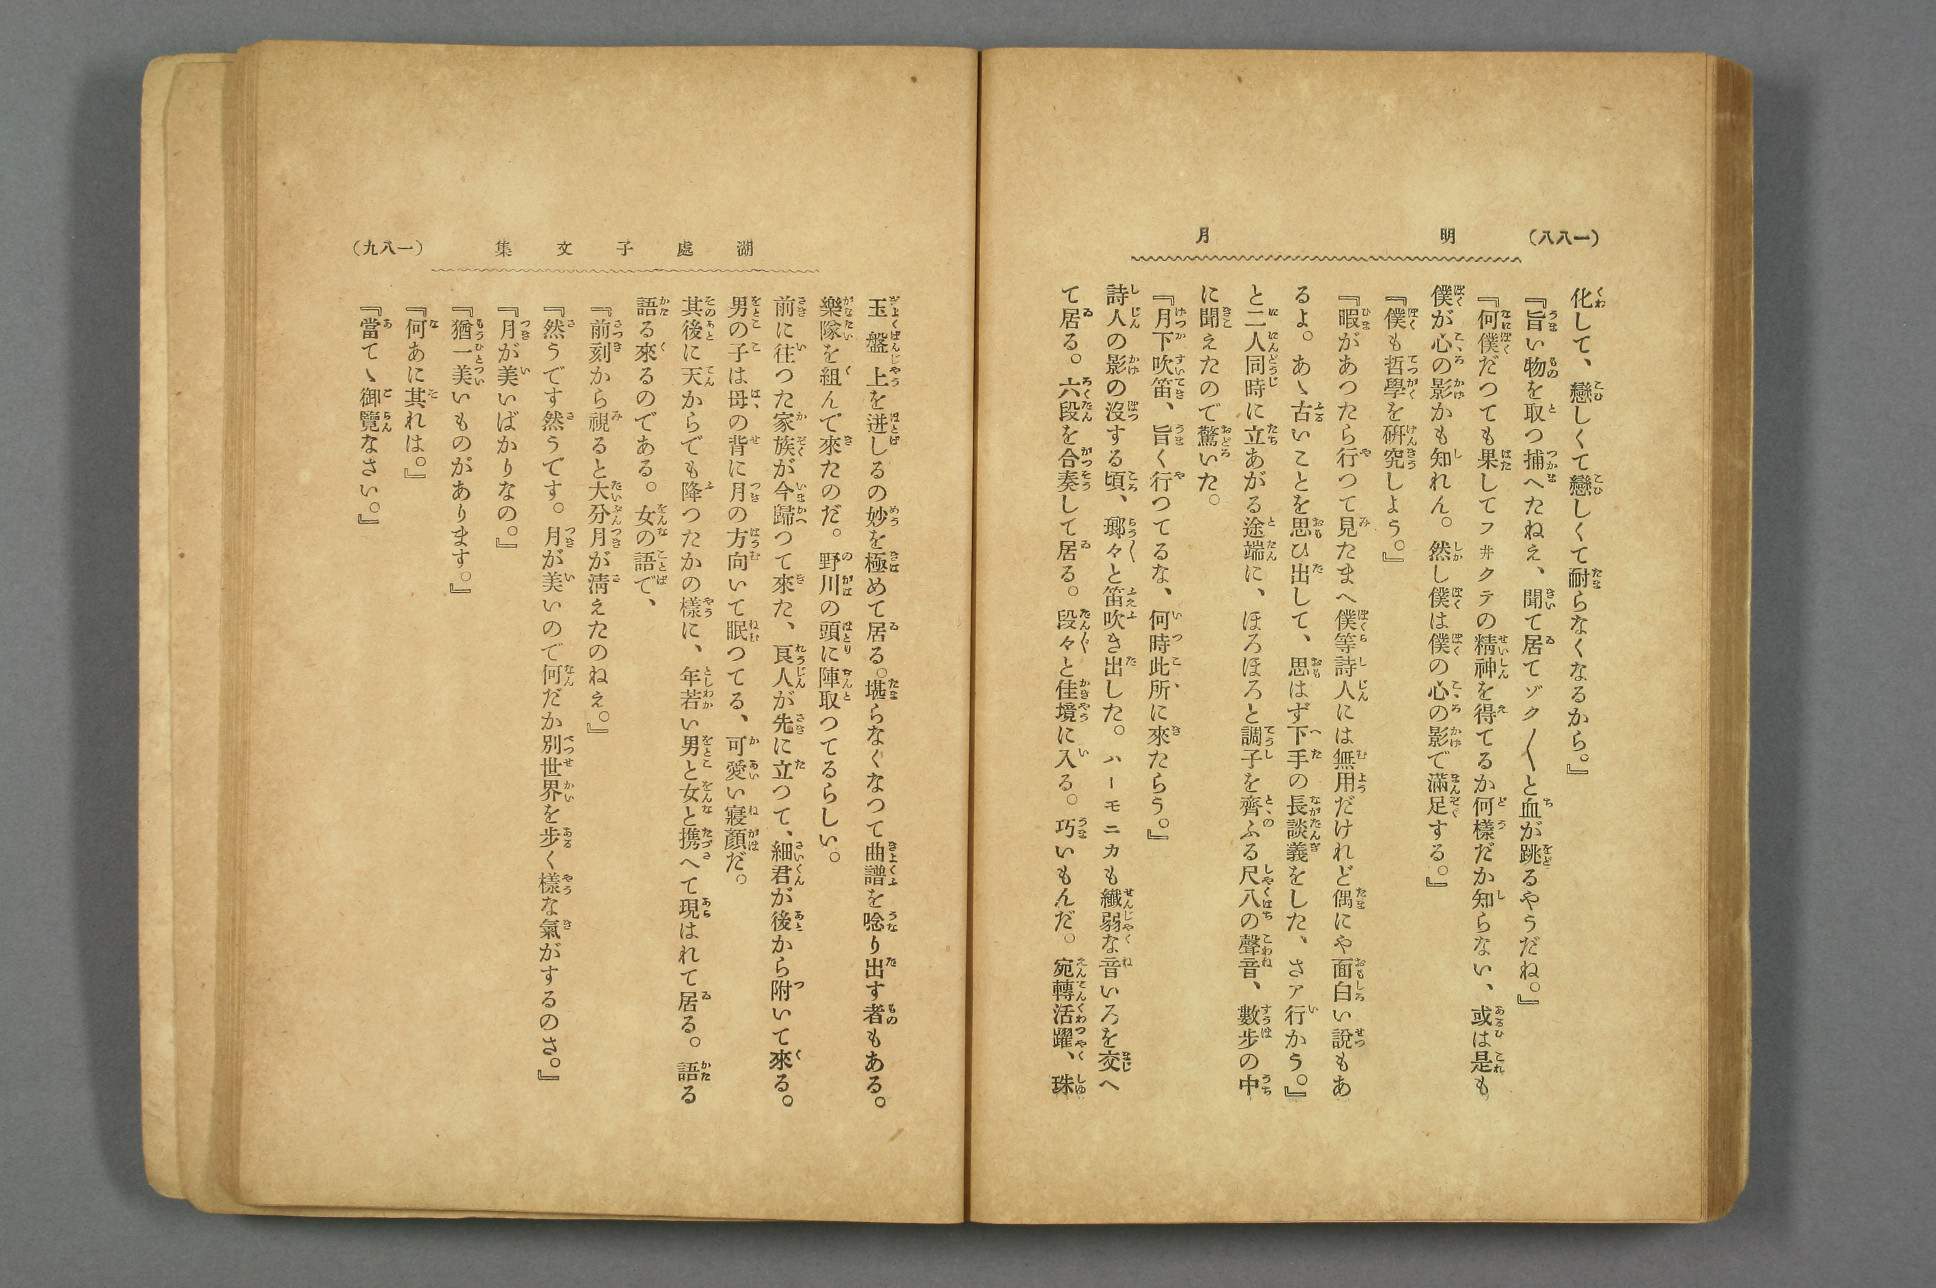 (一八八)
明月
化して、戀しくて戀しくて耐らなくなるから。』
『旨い物を取つ捕へたねえ、聞て居てゾク〱と血が跳るやうだね。』
『何僕だつても果してフ井クテの精神を得てるか何樣だか知らない、或は是も
僕が心の影かも知れん。然し僕は僕の心の影で滿足する。』
『僕も哲學を硏究しよう。』
『暇があつたら行つて見たまへ僕等詩人には無用だけれど偶にや面白い說もあ
るよ。あゝ古いことを思ひ出して、思はず下手の長談義をした、さァ行かう。』
と二人同時に立あがる途端に、ほろほろと調子を齊ふる尺八の聲音、數步の中
に聞えたので驚いた。
『月下吹笛、旨く行つてるな、何時此所に來たらう。』
詩人の影の沒する頃、瑯々と笛吹き出した。ハーモニカも纎弱な音いろを交へ
て居る。六段を合奏して居る。段々と佳境に入る。巧いもんだ。宛轉活躍、珠
湖處子文集
(一八九)
玉盤上を迸しるの妙を極めて居る。堪らなくなつて曲譜を唸り出す者もある。
樂隊を組んで來たのだ。野川の頭に陣取つてるらしい。
前に往つた家族が今歸つて來た、良人が先に立つて、細君が後から附いて來る。
男の子は母の背に月の方向いて眠つてる、可愛い寢顏だ。
其後に天からでも降つたかの樣に、年若い男と女と携へて現はれて居る。語る
語る來るのである。女の語で、
『前刻から視ると大分月が淸えたのねえ。』
『然うです然うです。月が美いので何だか別世界を步く樣な氣がするのさ。』
『月が美いばかりなの。』
『猶一美いものがあります。』
『何あに其れは。』
『當てゝ御覽なさい。』